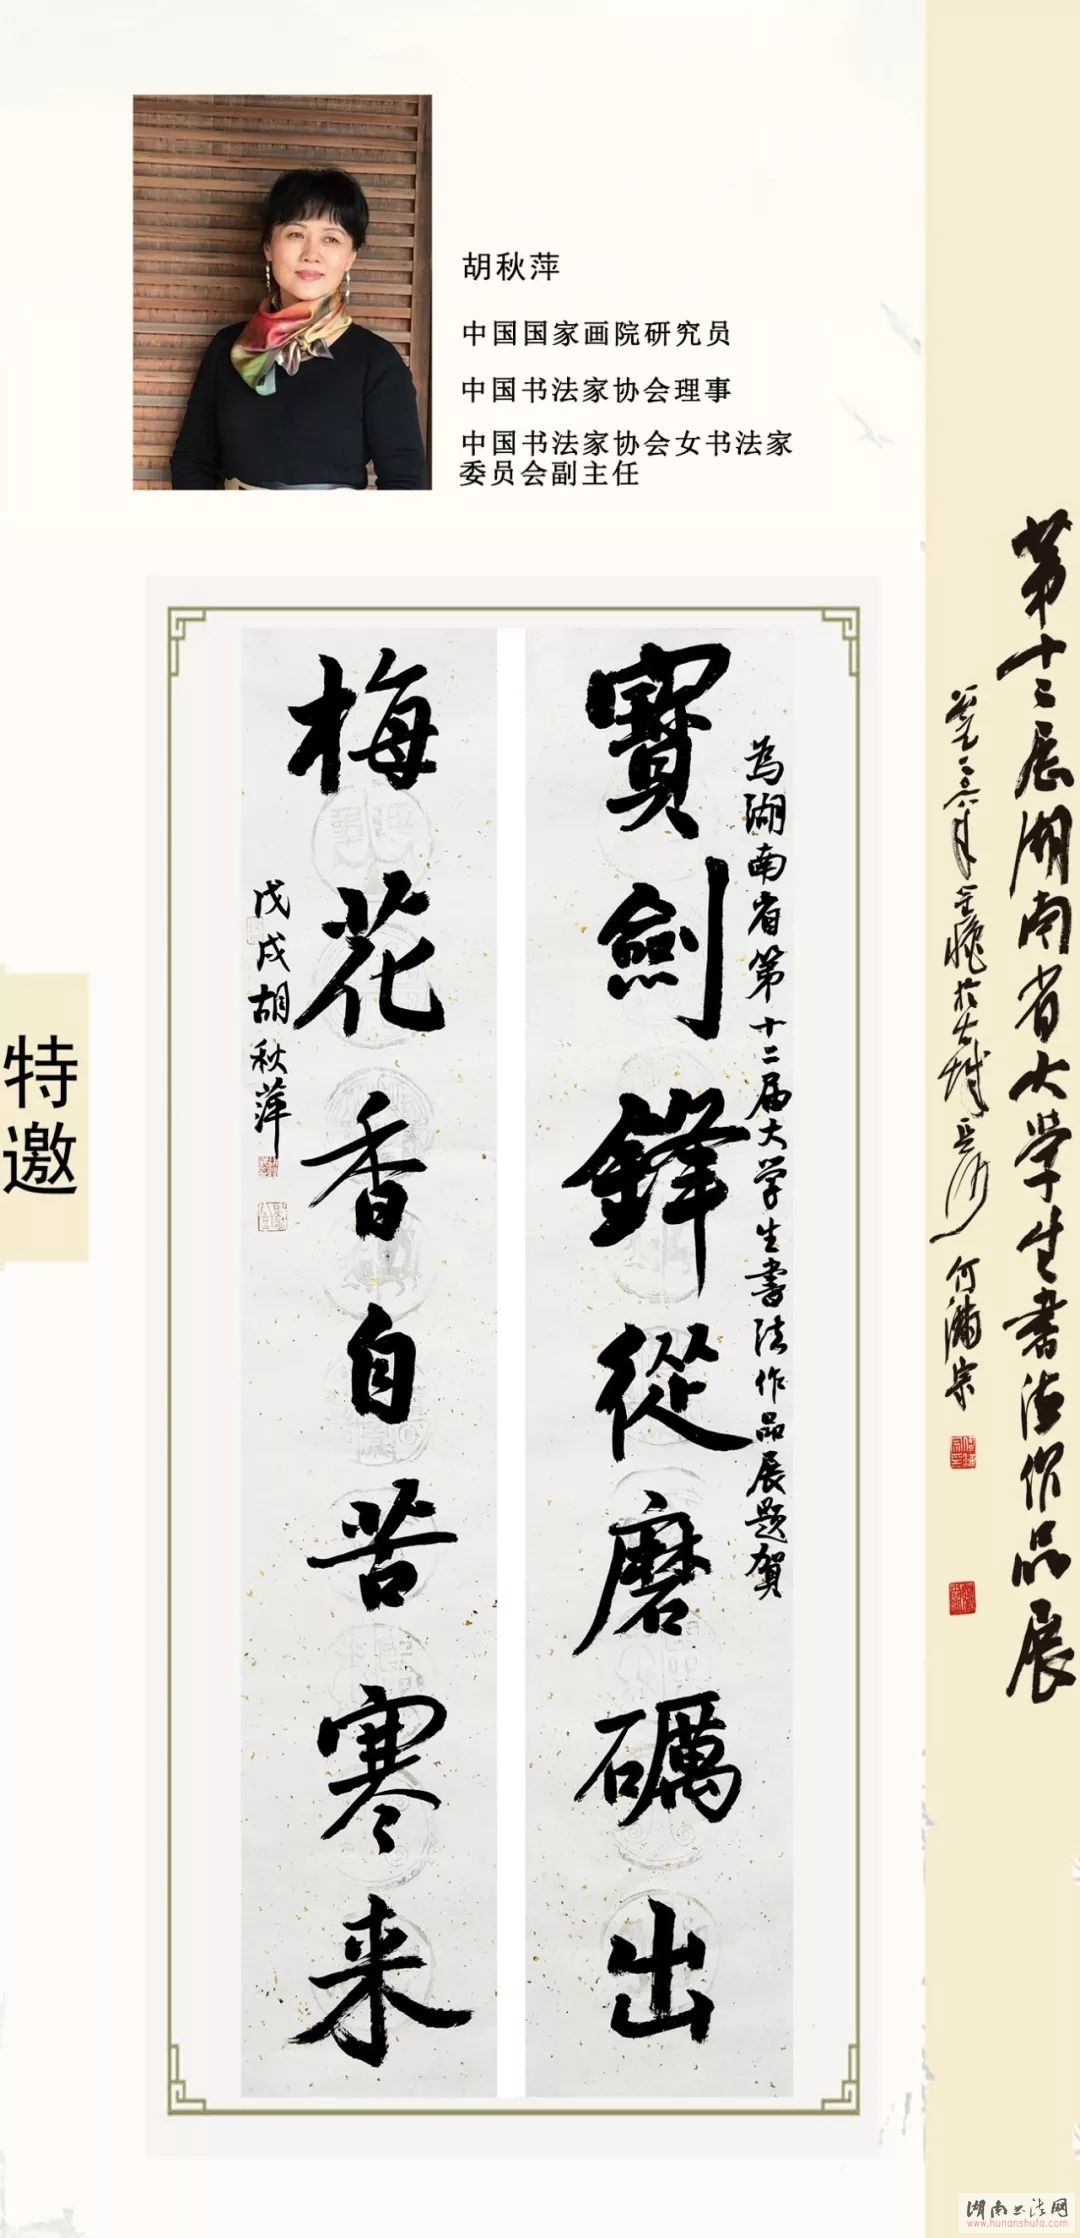 胡秋萍
中国国家画院研究员
中国书法家协会理事
中国书法家协会女书法家
委员会副主任
特邀
寶劍鋒從磨礪出
为湖南省第十二届大学生書法作品展题贺
梅花香自苦寒来
戊戌胡秋萍
第十二届湖南省大学生書法作品展
何满宗
湖南书法网
www.hunanshufa.com